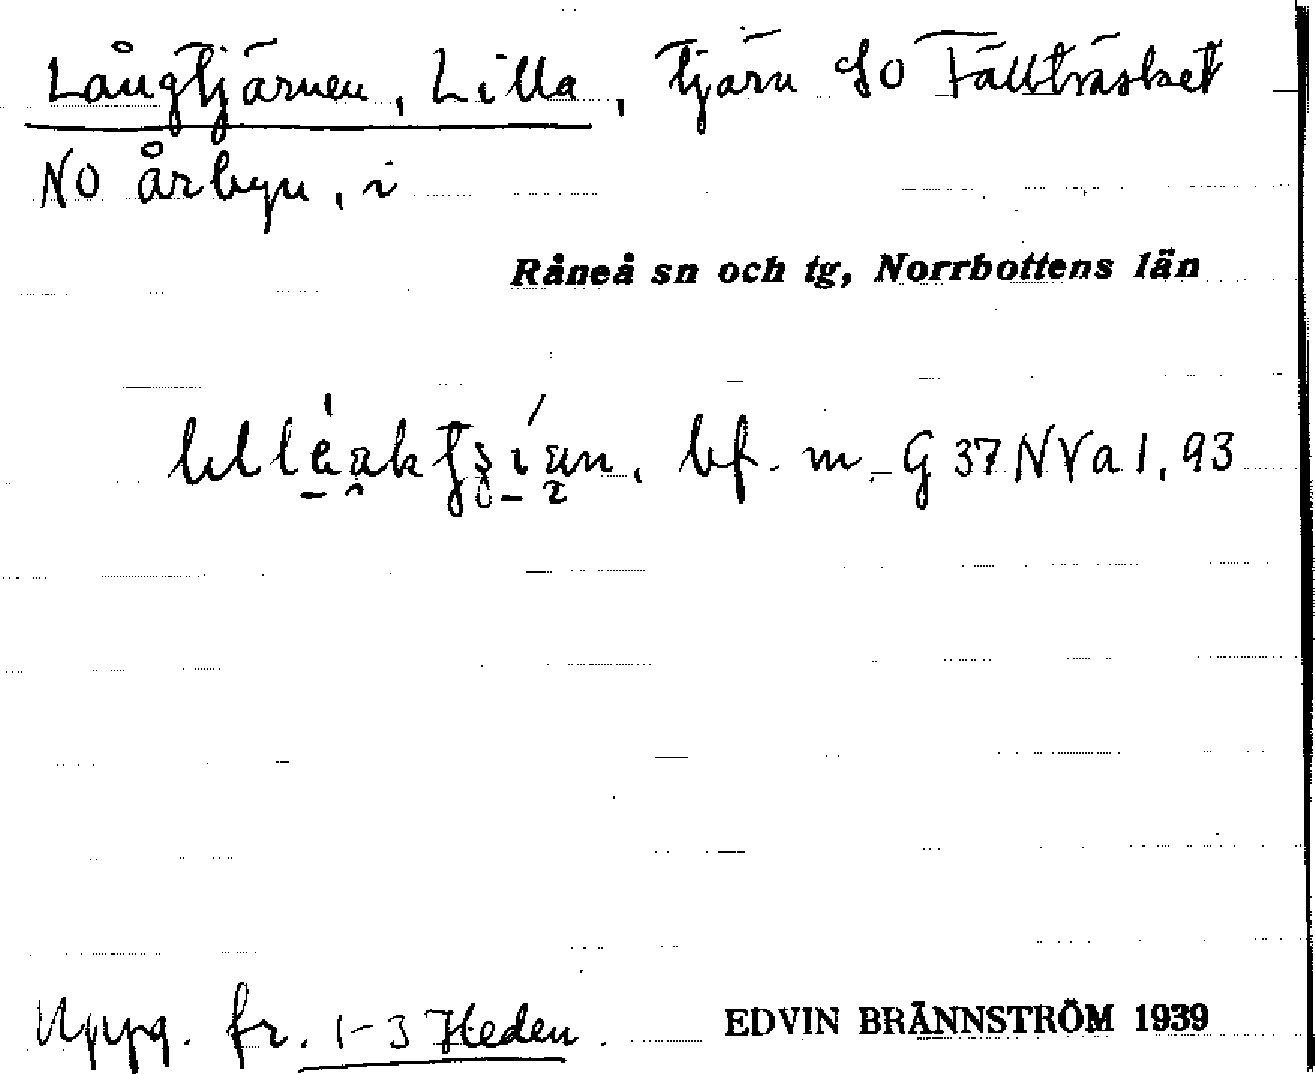 Långtjärnen, Lilla, tjärn SO Fällträsket
NO årbyn, i
Råneå sn och tg, Norrbottens län
bf. m. G 37 NV a 1, 93
Uppg. fr. 1-3 Heden.
EDVIN BRÄNNSTRÖM 1939